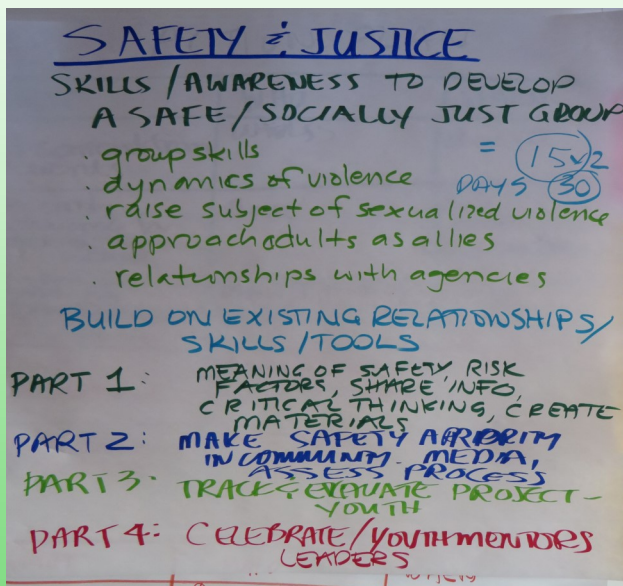 SAFETY & JUSTICE
SKILLS/AWARENESS TO DEVELOP
A SAFE/SOCIALLY JUST GROUP
. group skills
. dynamics of violence
= 15 x 2
DAYS 30
. raise subject of sexualized violence
. approach adults as allies
. relationships with agencies
BUILD ON EXISTING RELATIONSHIPS/
SKILLS/TOOLS
PART 1: MEANING OF SAFETY, RISK
FACTORS, SHARE INFO,
CRITICAL THINKING, CREATE
MATERIALS
PART 2: MAKE SAFETY A PRIORITY
IN COMMUNITY. MEDIA,
ASSESS PROCESS
PART 3. TRACK & EVALUATE PROJECT -
YOUTH
PART 4: CELEBRATE/YOUTH MENTORS
LEADERS